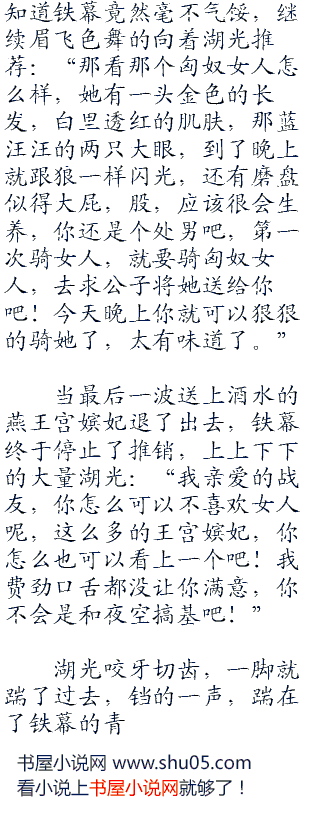 知道铁幕竟然毫不气馁，继
续眉飞色舞的向着湖光推
荐：“那看那个匈奴女人怎
么样，她有一头金色的长
发，白里透红的肌肤，那蓝
汪汪的两只大眼，到了晚上
就跟狼一样闪光，还有磨盘
似得大屁，股，应该很会生
养，你还是个处男吧，第一
次骑女人，就要骑匈奴女
人，去求公子将她送给你
吧！今天晚上你就可以狠狠
的骑她了，太有味道了。”
当最后一波送上酒水的
燕王宫嫔妃退了出去，铁幕
终于停止了推销，上上下下
的大量湖光：“我亲爱的战
友，你怎么可以不喜欢女人
呢，这么多的王宫嫔妃，你
怎么也可以看上一个吧！我
费劲口舌都没让你满意，你
不会是和夜空搞基吧！”
湖光咬牙切齿，一脚就
踹了过去，铛的一声，踹在
了铁幕的青
书屋小说网 www.shu05.com
看小说上书屋小说网就够了！